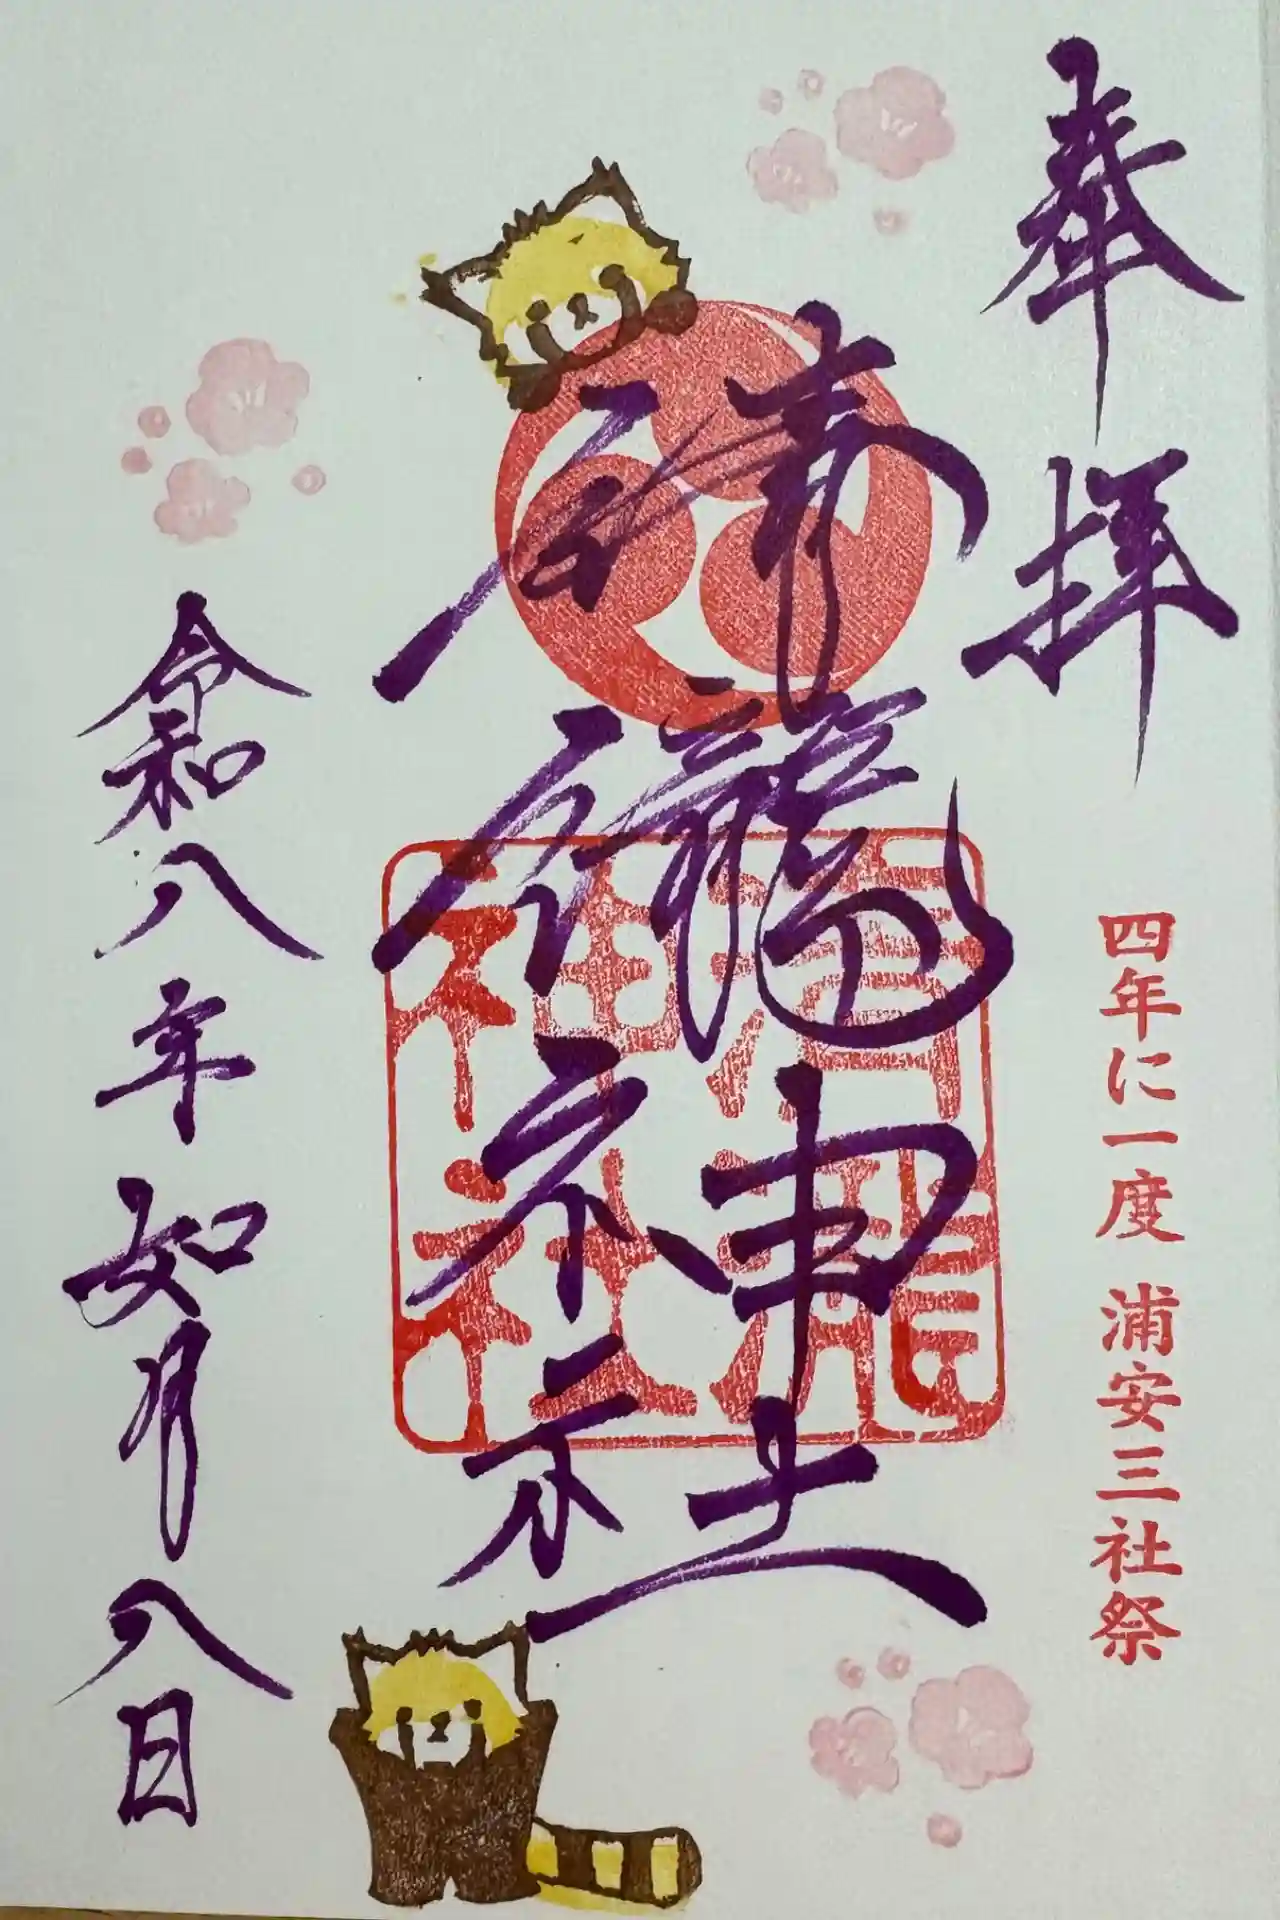 奉拝
四年に一度 浦安三社祭
清瀧神社
清瀧
神社
令和八年如月八日